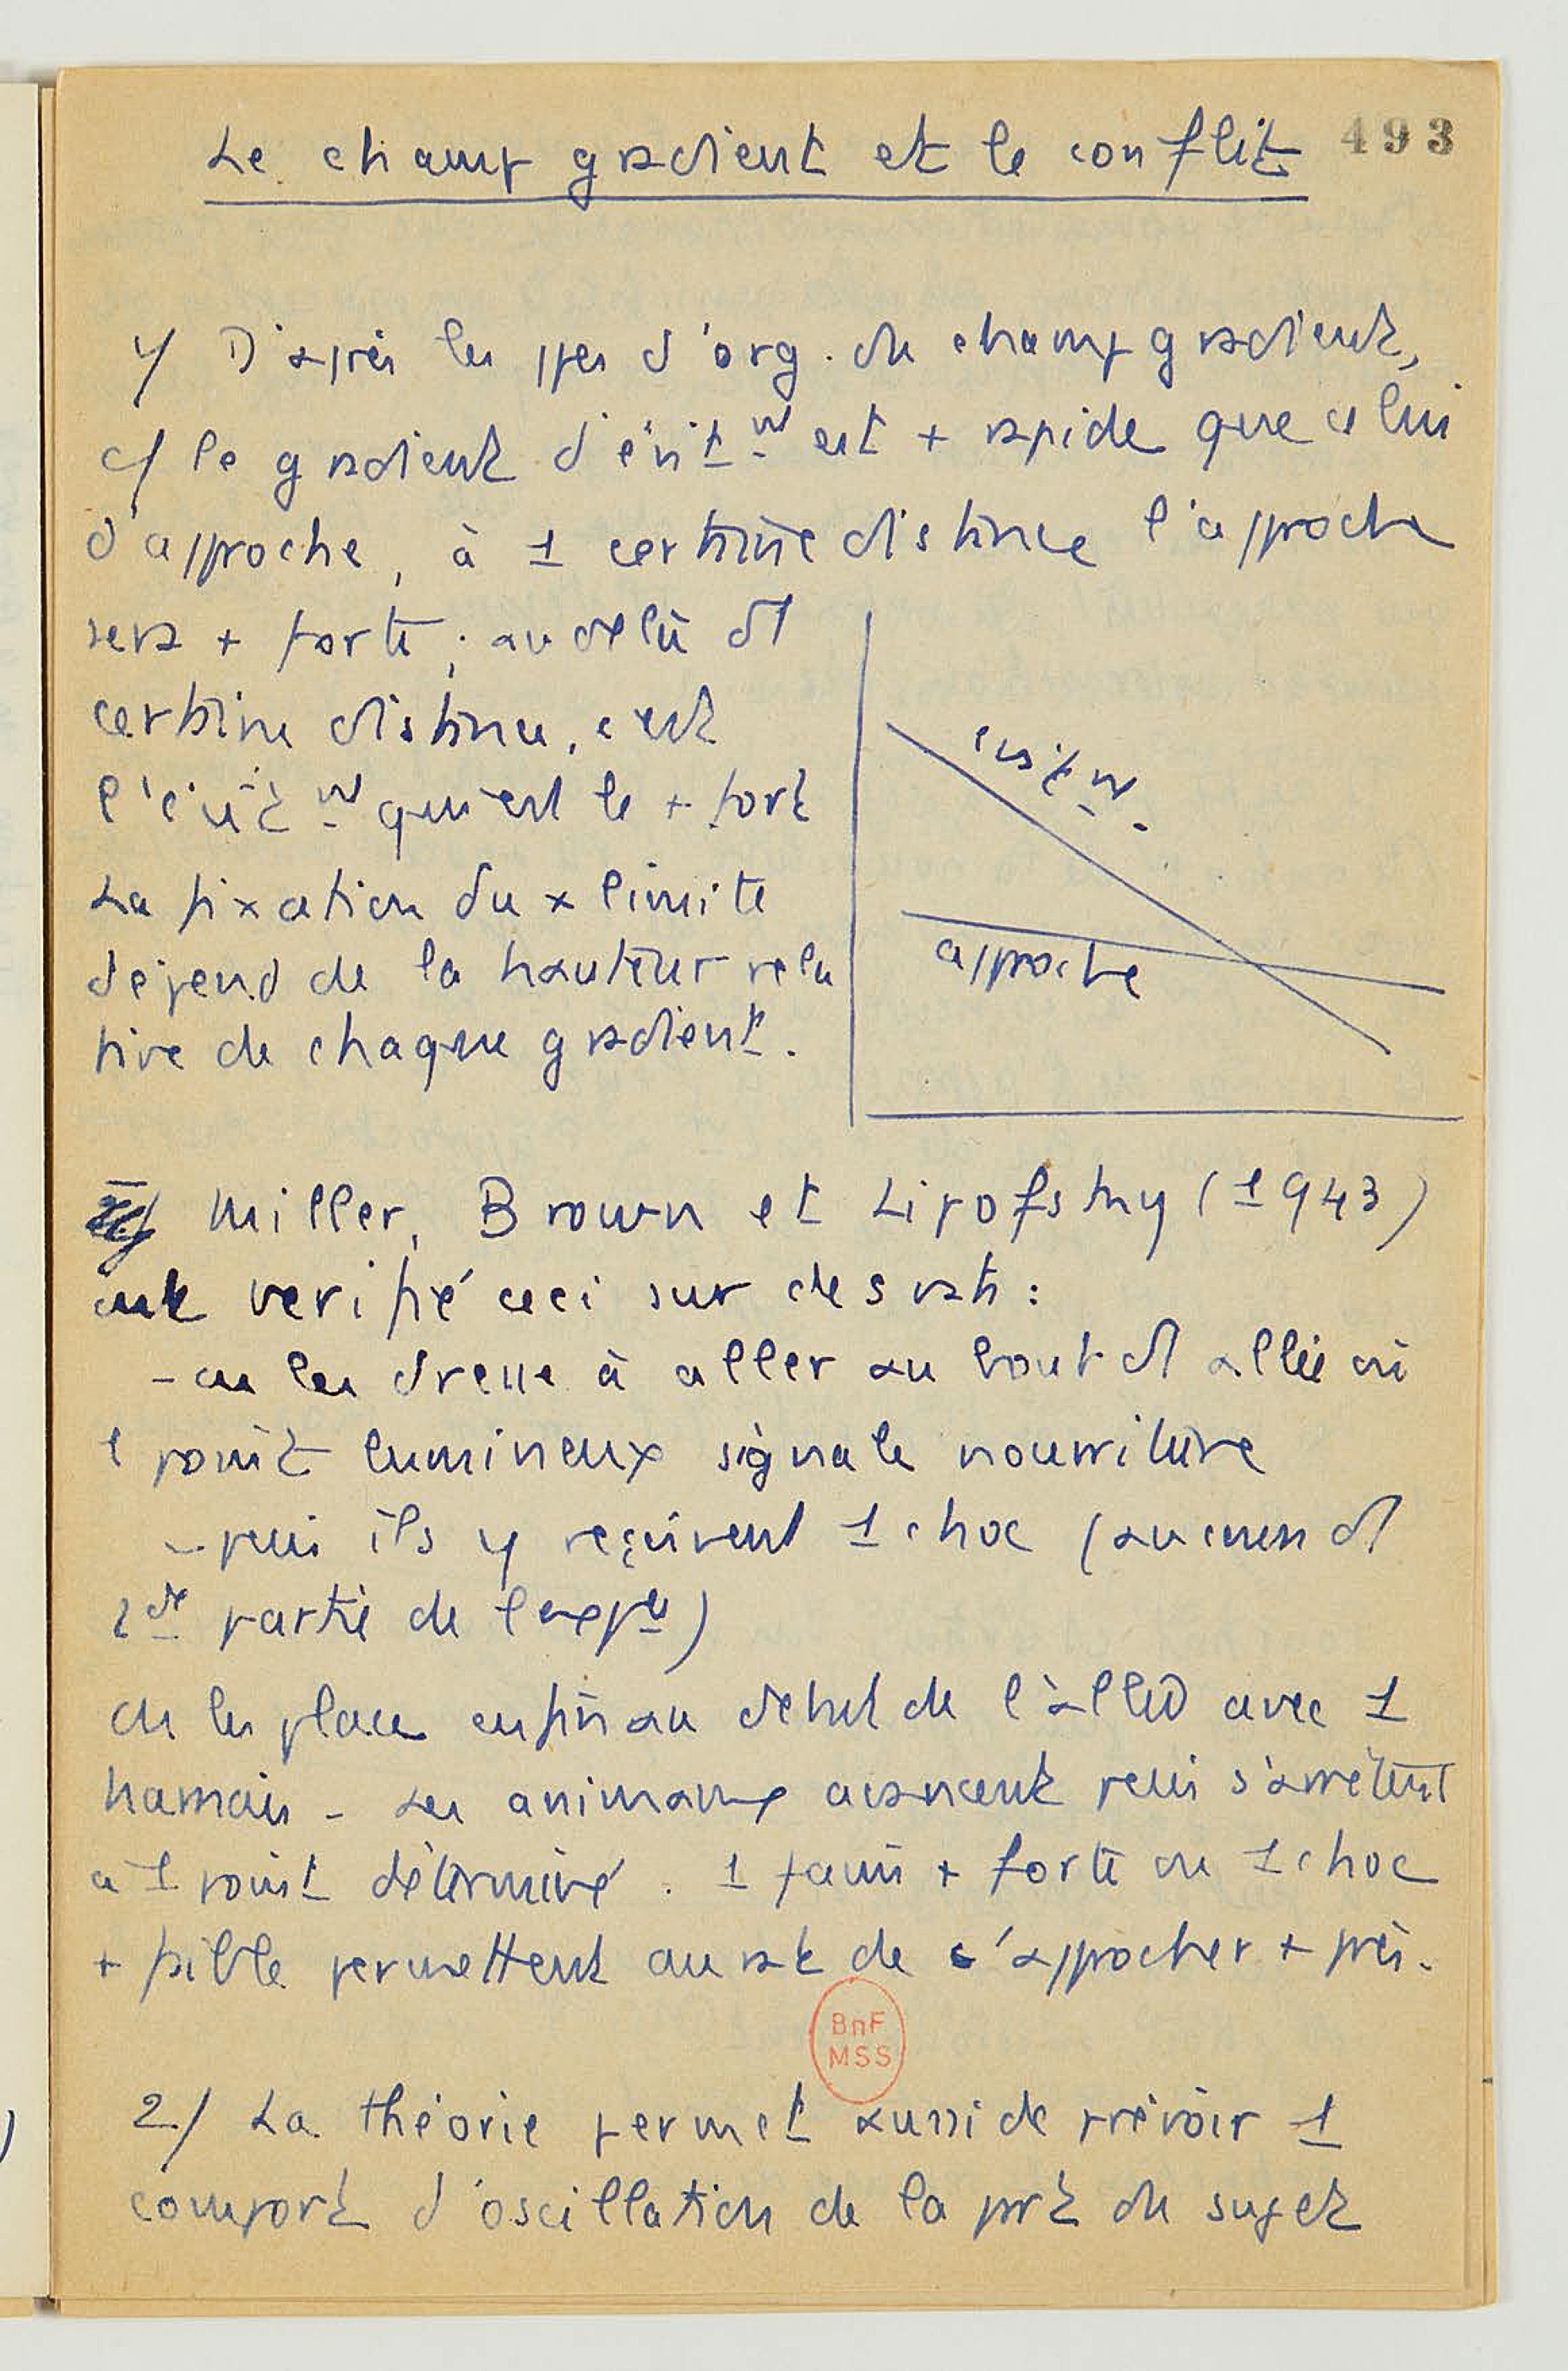 Le champ gradient et le conflit 493
1/ D'après les ppes d'org. du champ gradient,
c/ le gradient d'évitt est + rapide que celui
d'approche, à 1 certaine distance l'approche
sera + forte ; au delà d1
certaine distance, c'est
l'évitt qui est le + fort
La fixation du x limite
dépend de la hauteur rela
tive de chaque gradient.
évitt.
approche
Miller, Brown et Lipofsky (1943)
ont verifié ceci sur des rats :
- on les dresse à aller au bout d1 allée où
1 point lumineux signale nourriture
- puis ils y reçoivent 1 choc (au cours d1
2de partie de l'expce)
On les place enfin au debut de l'allée avec 1
harnais - Les animaux avancent puis s'arrêtent
à 1 point déterminé. 1 faim + forte ou 1 choc
+ faible permettent au rat de s'approcher + près.
BnF
MSS
2/ La théorie permet aussi de prévoir 1
comport d'oscillation de la prt du sujet